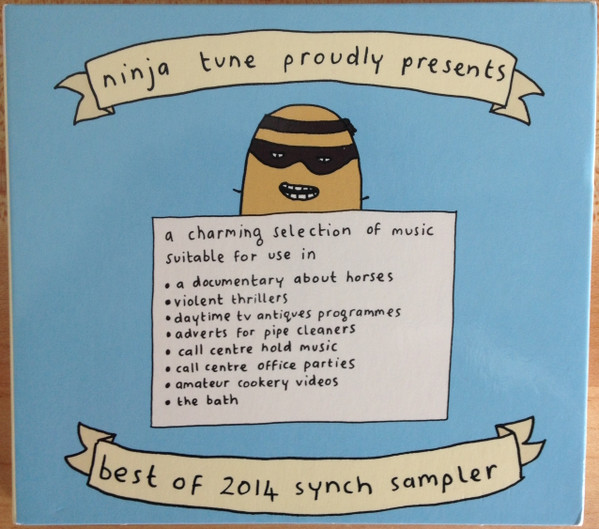 ninja tune proudly presents
a charming selection of music
suitable for use in
• a documentary about horses
• violent thrillers
• daytime tv antiques programmes
• adverts for pipe cleaners
• call centre hold music
• call centre office parties
• amateur cookery videos
• the bath
best of 2014 synch sampler